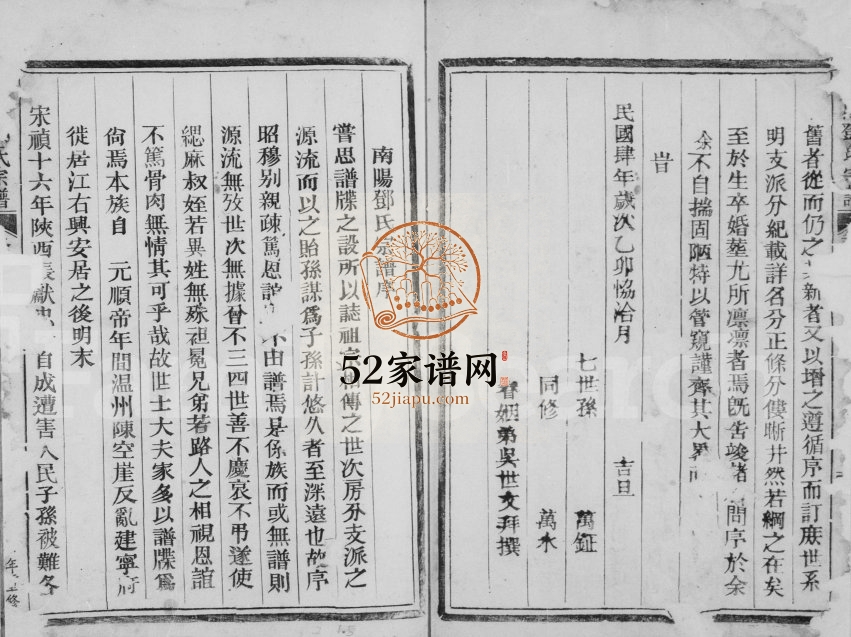 舊者從而仍之新者又以增之遵循序而訂庶世系
明支派分紀載詳名分正條分僂晰井然若綱之在矣
至於生卒婚塟尤所凛凛者焉旣告竣諸問序於余
余不自揣固陋特以管窺謹齊其大畧
旹
民國肆年歲次乙卯恊洽月
吉旦
七世孫 萬鉦
同修 萬水
眷姻弟吳世文拜撰
南陽鄧氏宗譜序
嘗思譜牒之設所以誌祖之相傳之世次房分支派之
源流而以之貽孫謀爲子孫計悠久者至深遠也故序
昭穆别親疎篤恩誼不由譜焉是係族而或無譜則
源流無攷世次無據曾不三四世善不慶哀不弔遂使
緦麻叔姪若異姓無殊袒冕兄弟若路人之相視恩誼
不篤骨肉無情其可乎哉故世士大夫家多以譜牒爲
尙焉本族自 元順帝年間温州陳空崖反亂建寧府
徙居江右興安居之後明末
宋禎十六年陝西獻忠自成遭害人民子孫被難各
氏宗譜
年 修
52家谱网
52jiapu.com